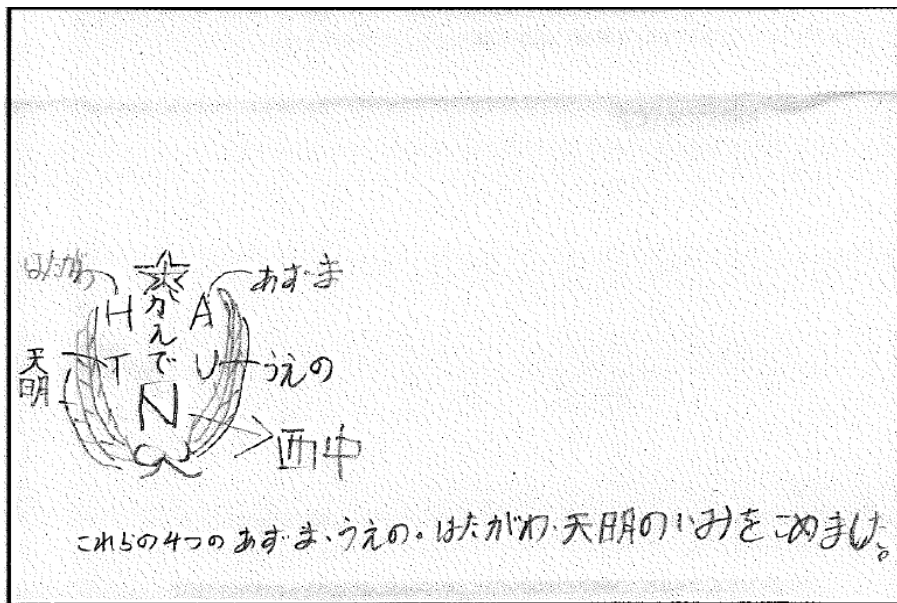 はたがわ
あずま
H
A
かえで
天明
T
U
うえの
N
西中
これらの4つのあずま、うえの。はたがわ・天明のいみをこめました。